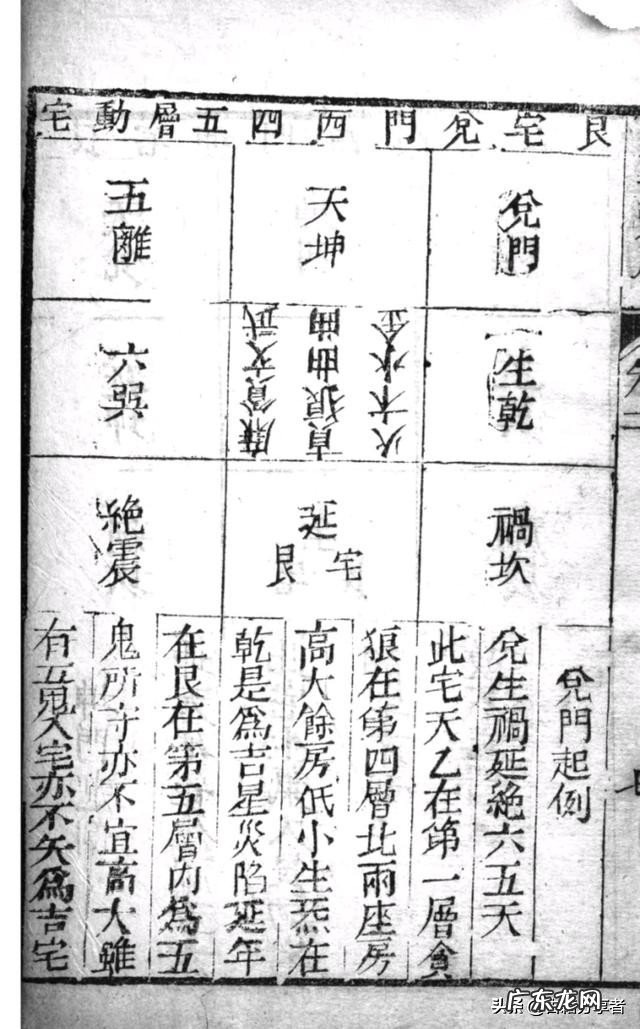 艮宅兌門西四五層動宅
兌門
天坤
五離
生乾
火木水金
貞狼曲曲
廉貪文武
六巽
禍坎
延
艮宅
絶震
兌門起例
兌生禍延絶六五天
此宅天乙在第一層貪
狼在第四層此兩座房
高大餘房低小生炁在
乾是為吉星災陷延年
在艮在第五層內為五
鬼所守亦不宜高大雖
有五鬼入宅亦不失為吉宅
卷二
七
头条
广东龙网
享者